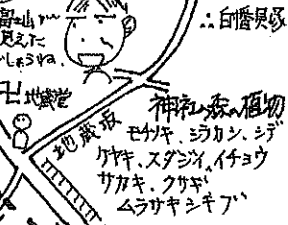 富士山が
見えた
でしょうね。
∴白幡貝塚
卍地蔵堂
地蔵坂
神社の森の植物
モチノキ、シラカシ、シデ
ケヤキ、スダジイ、イチョウ
サカキ、クサギ
ムラサキシキブ